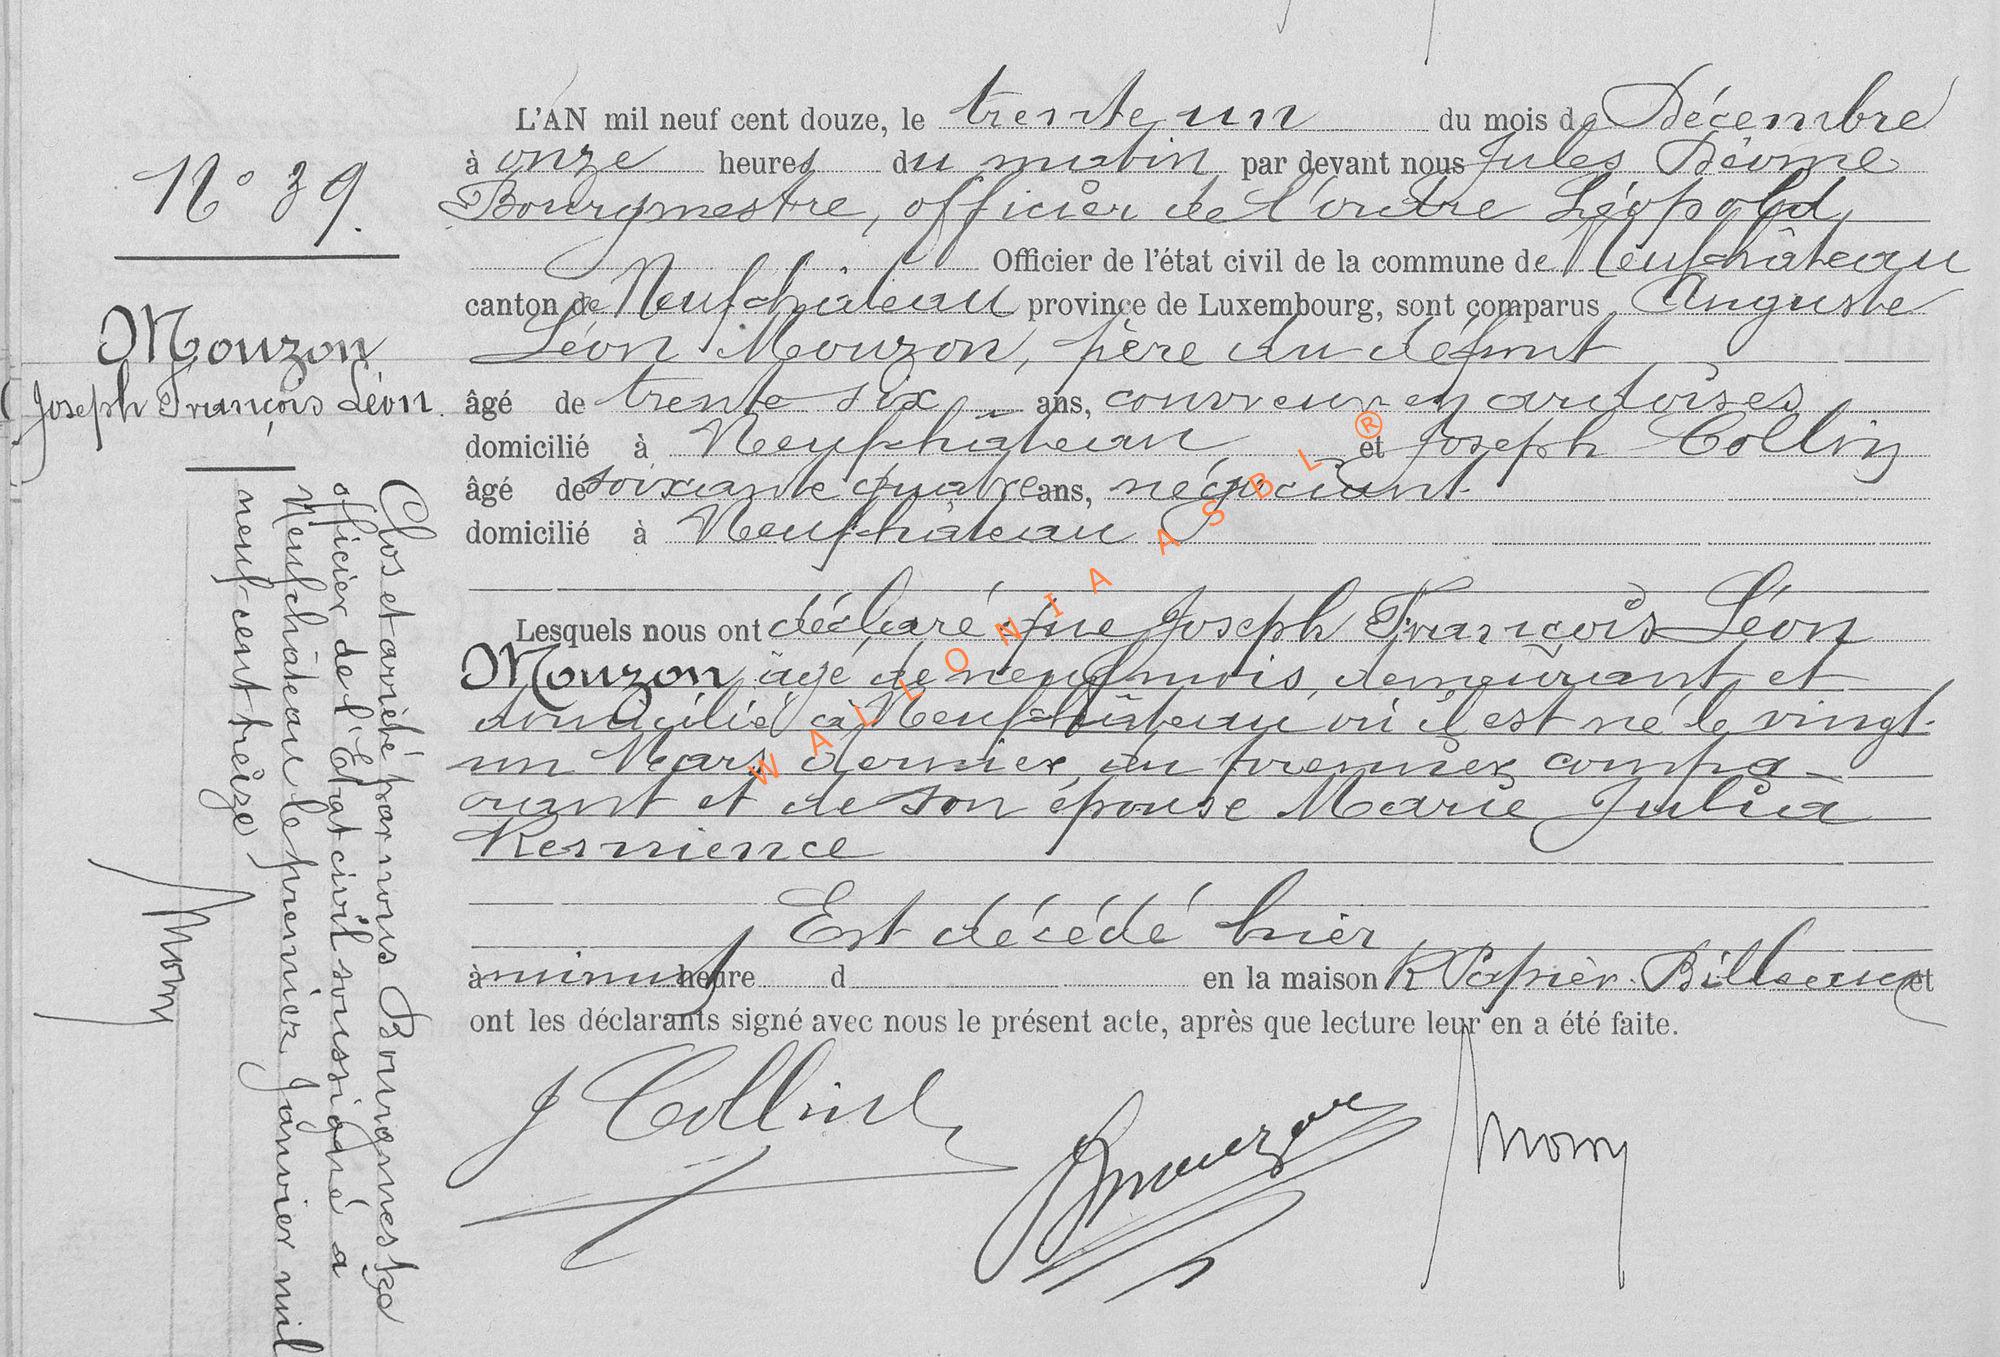 N° 39.
Mouzon
Joseph François Léon.
Clos et arrêté par nous Bourgmestre
officier de l'Etat civil soussigné à
Neufchâteau le premier Janvier mil
neuf cent treize
L'AN mil neuf cent douze, le trente un du mois de Décembre
à onze heures du matin par devant nous Jules
Bourgmestre, officier de l'ordre Léopold,
Officier de l'état civil de la commune de Neufchâteau
canton de Neufchâteau province de Luxembourg, sont comparus Auguste
Léon Mouzon, père du défunt
âgé de trente six ans, couvreur en ardoises
domicilié à Neufchâteau et Joseph Collin
âgé de soixante quatre ans, négociant.
domicilié à Neufchâteau
Lesquels nous ont déclaré que Joseph François Léon
Mouzon, âgé de neuf mois, demeurant et
domicilié à Neufchâteau où il est né le vingt-
un Mars dernier, du premier compa-
rant et de son épouse Marie Julia
Resnience
Est décédé hier
à minuit heure d en la maison R Papier. Billeaux et
ont les déclarants signé avec nous le présent acte, après que lecture leur en a été faite.
J Collin
Mouzon
WALLONIA ASBL ®